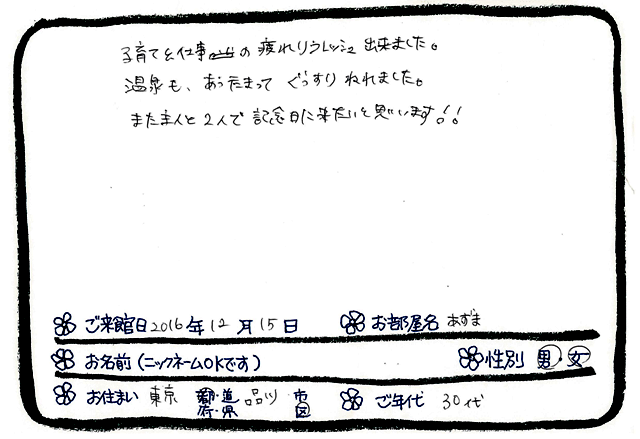 子育てと仕事の疲れリフレッシュ出来ました。
温泉も、あったまって ぐっすりねれました。
また主人と2人で記念日に来たいと思います!!
ご来館日 2016年12月15日 お部屋名 あずま
お名前(ニックネームOKです) 性別 男・女
お住まい 東京 都・道・府・県 品川 市・区 ご年代 30代